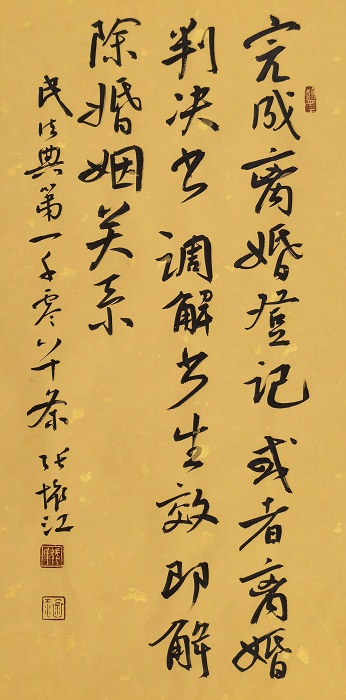 完成离婚登记或者离婚
判决书调解书生效即解
除婚姻关系
民法典第一千零八十条